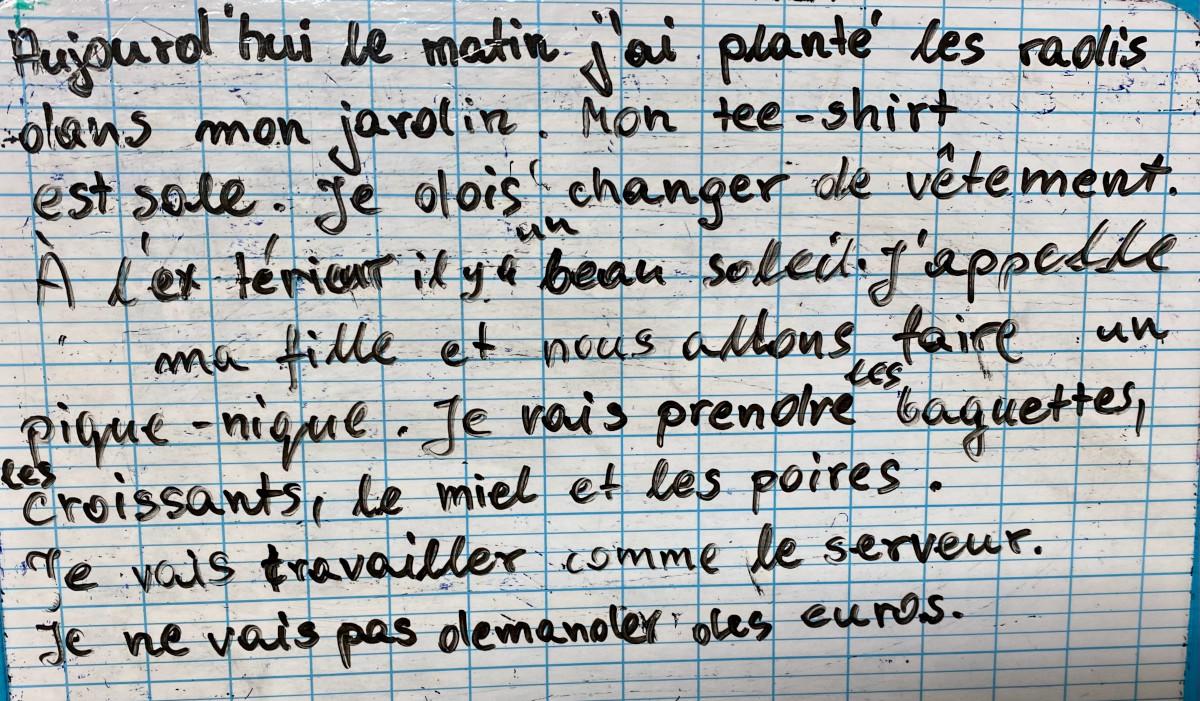 Aujourd'hui le matin j'ai planté les radis
dans mon jardin. Mon tee-shirt
est sale. Je dois changer de vêtement.
À l'extérieur il y a un beau soleil. J'appelle
ma fille et nous allons faire un
pique-nique. Je vais prendre les baguettes,
les croissants, le miel et les poires.
Je vais travailler comme le serveur.
Je ne vais pas demander des euros.